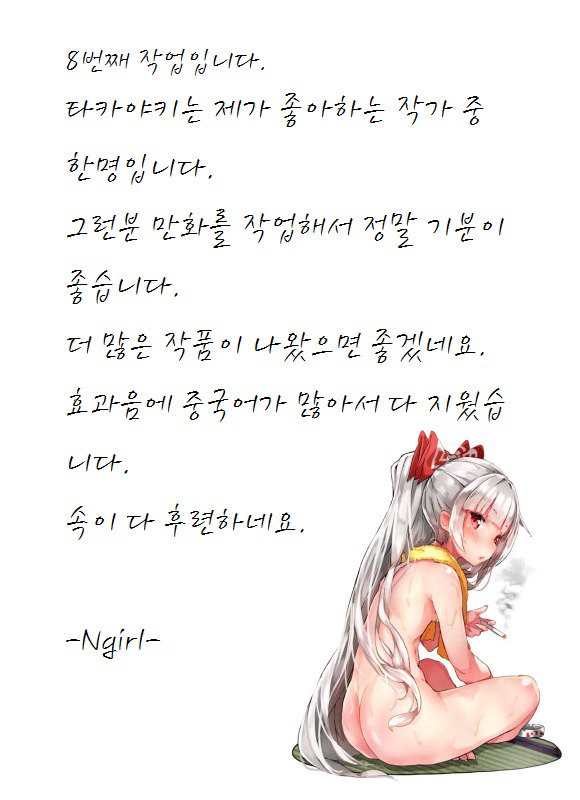 8번째 작업입니다.
타카야키는 제가 좋아하는 작가 중
한명입니다.
그런분 만화를 작업해서 정말 기분이
좋습니다.
더 많은 작품이 나왔으면 좋겠네요.
효과음에 중국어가 많아서 다 지웠습
니다.
속이 다 후련하네요.
-Ngirl-